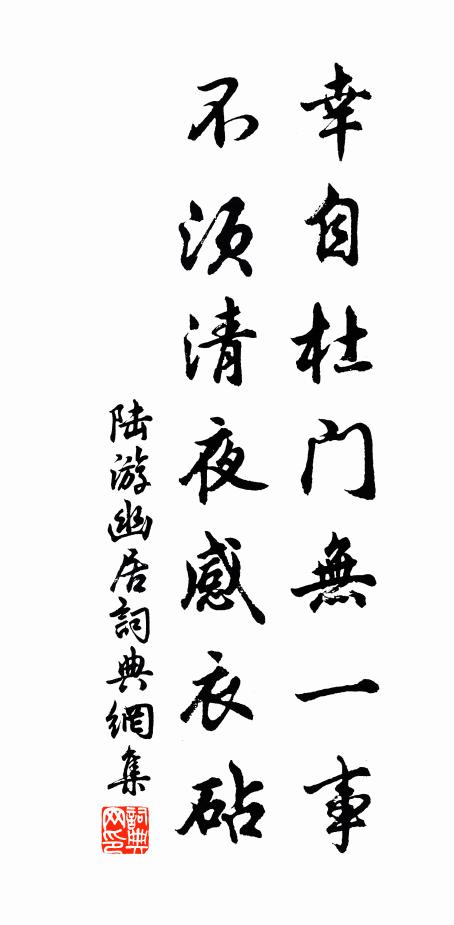 幸自杜门無一事
不须清夜感衣砧
陆游幽居詞典網集
詞典网印